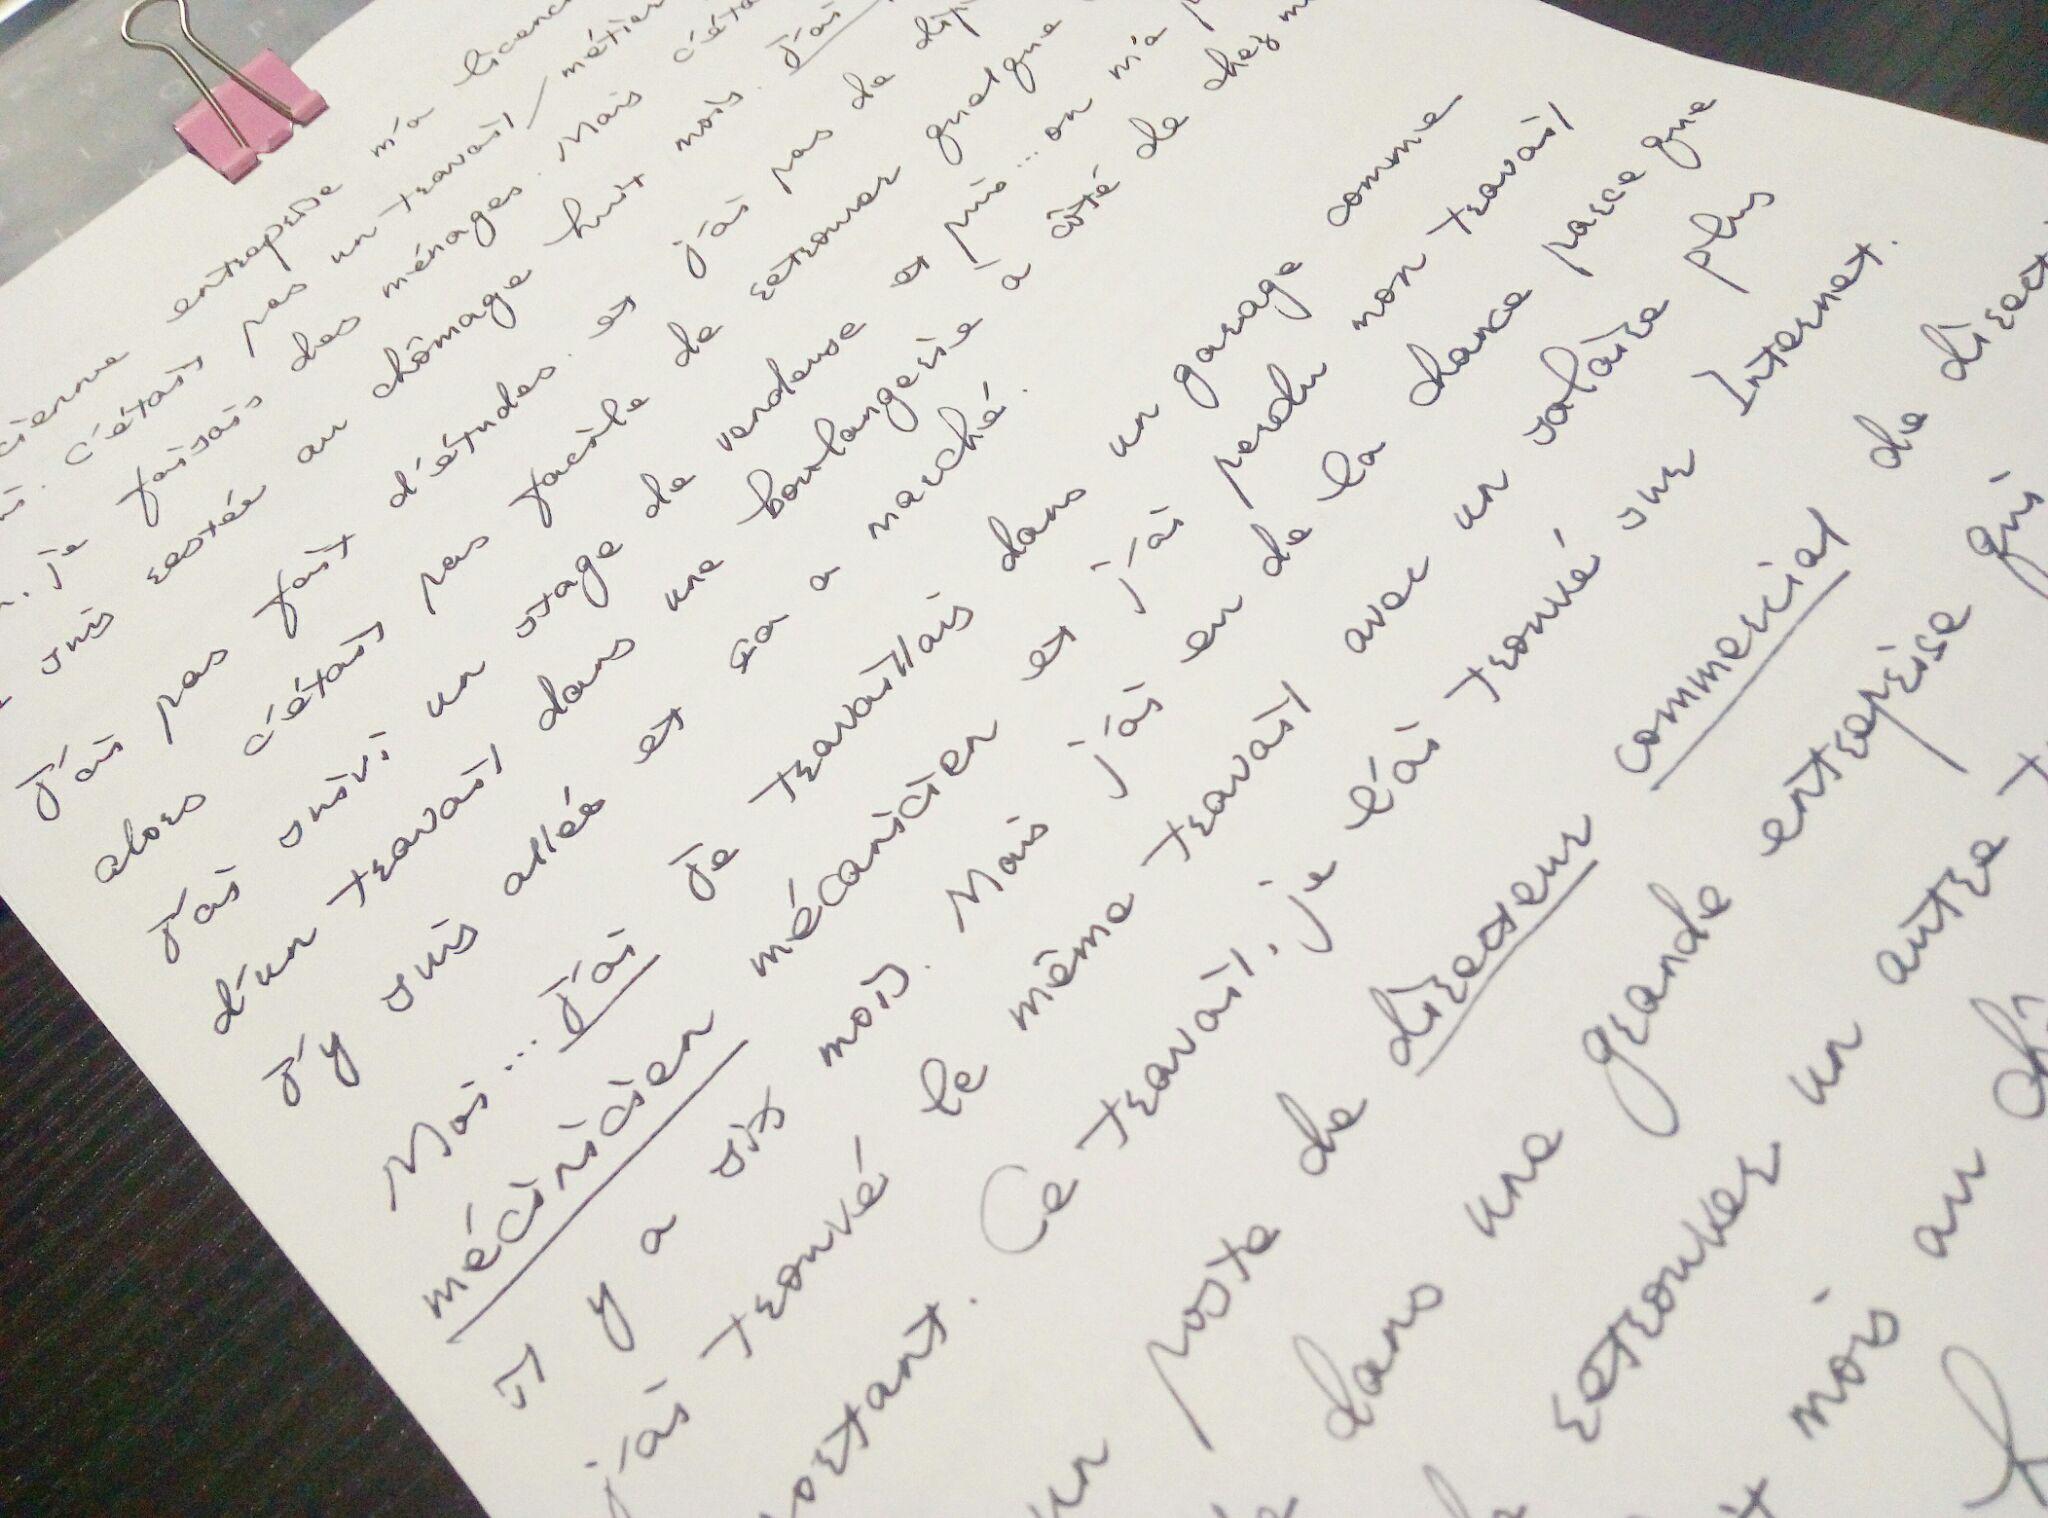 entreprise m'a
c'était pas un travail / métier
je faisais des ménages. Mais
suis restée au chômage huit mois. J'ai
J'ai pas fait d'études. et j'ai pas de
alors c'était pas facile de retrouver quelque
J'ai suivi un stage de vendeuse et puis... on m'a
d'un travail dans une boulangerie à côté de chez
J'y suis allée et ça a marché.
Moi... J'ai Je travaillais dans un garage comme
mécanicien mécanicien et j'ai perdu mon travail
il y a six mois. Mais j'ai eu de la chance parce que
j'ai trouvé le même travail avec un salaire plus
Ce travail, je l'ai trouvé sur Internet.
poste de directeur commercial de
dans une grande entreprise qui
retrouver un autre
mois au